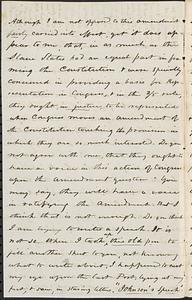 Although I am not opposed to this amendment
fairly carried into effect, yet it does ap
pear to me that, in as much as these
Slave States had an equal part in for
ming the Constitution & were equally
concerned in providing a basis for Rep
resentation in Congress, in the
they ought in justice, to be represented
when Congress moves an amendment of
the Constitution touching the provision in
which they are so much interested. Do you
not agree with me, that they ought to
have a voice in this action of Congress
upon the Amendment question? You
may say, they will have a voice
in ratifying the Amendment. But I
think that is not enough. Do you think
I am trying to write a speech. It is
not so. When I took up this old pen to
fill another sheet upon not knowing
what to write about, I happened to cast
my eye upon the last
, & saw, in staring letters, "Johnson's Speech